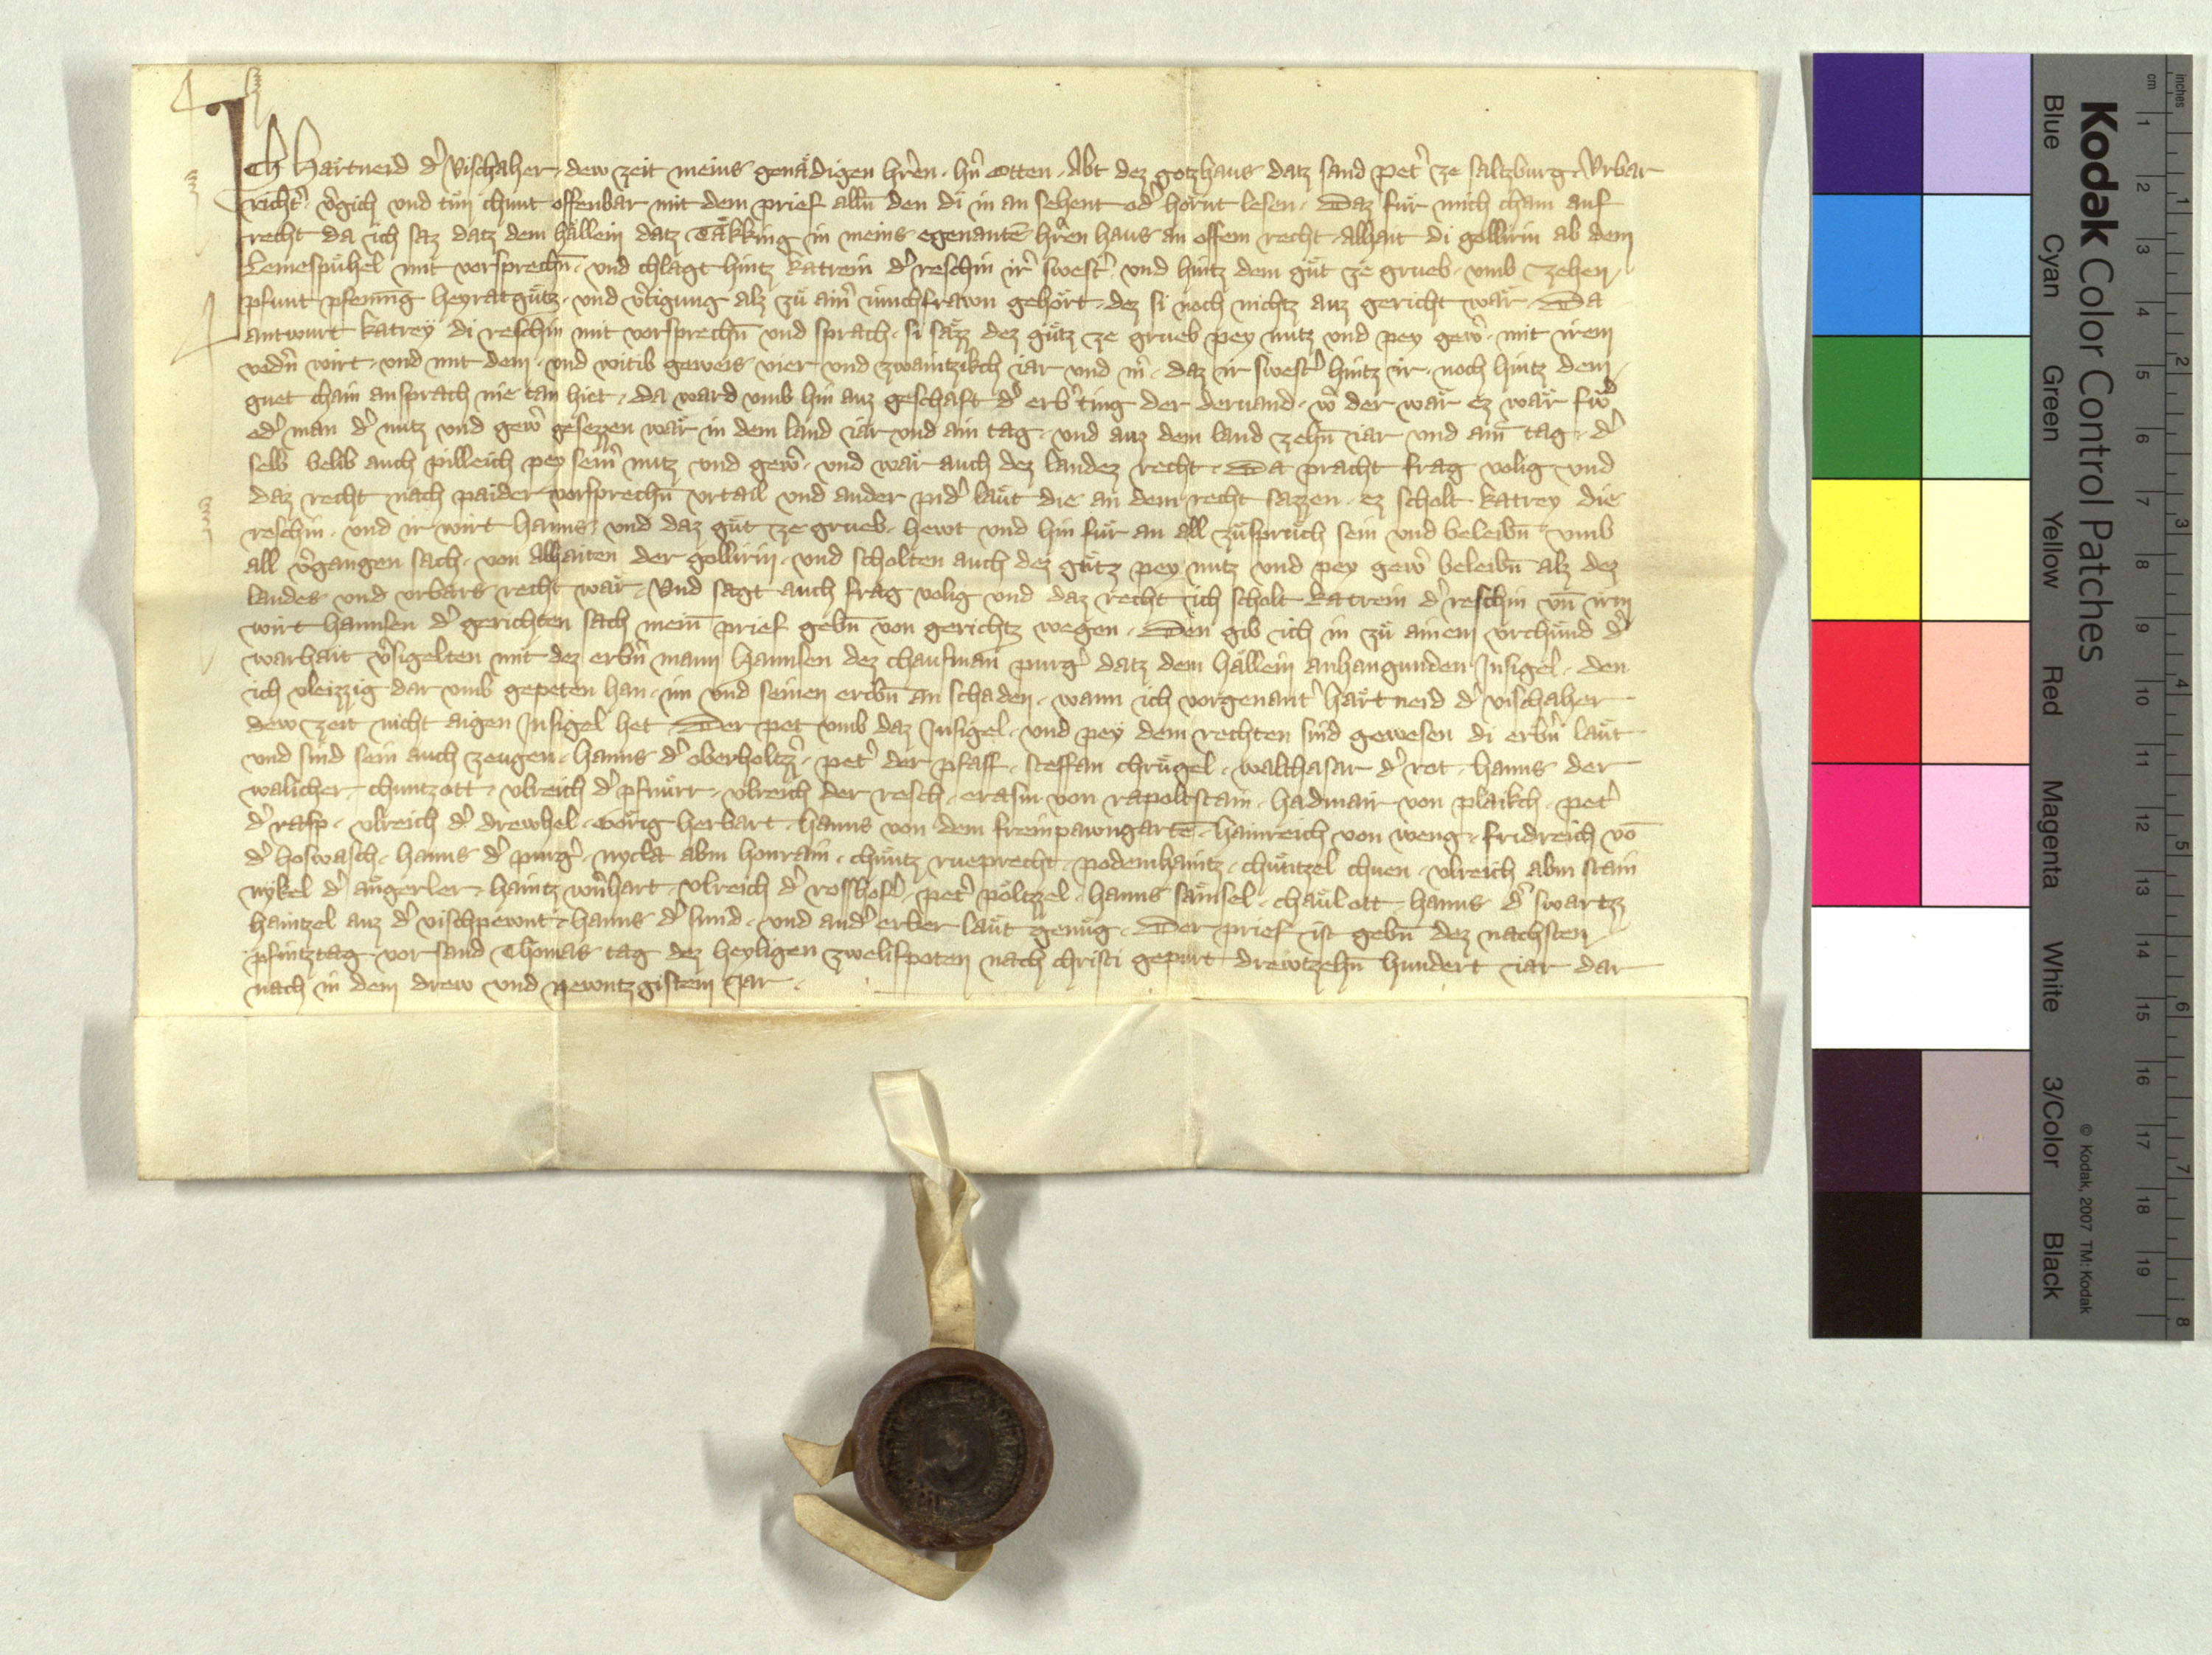 Ich Hartneid d' Vischaher dew zeit meins genädigen hr̄en hn̄ Otten Abt dez gotzhaus datz sand Pet' ze Saltzburg Vrbar
richt' v'gich vnd tůn chunt offenbar mit dem prief alln̄ den di in an sehent od' hörnt lesen Daz für mich cham auf
recht da ich saz datz dem hällein datz Täkking in meins egenantē hr̄en haus an offem recht Alhait di gollirin ab dem
Lemespühel mit vorsprechn̄ vnd chlagt hintz katrein d' reschin ir' swest' vnd hintz dem gůt ze grueb vmb zehen
pfunt pfening heyratgůtz vnd v'tigung alz zů ain' iunchfrawn gehört dez si noch nichtz auz gericht wär Da
antwurt katrey di reschin mit vorsprechn̄ vnd sprach si säzz dez gůtz ze grueb pey nutz vnd pey gew' mit irem
vodn̄ wirt vnd mit dem vnd witib geweis vier vnd zwaintzikch iar vnd m' daz ir swest' hintz ir noch hintz dem
guet chain ansprach nie tan hiet da ward vmb hin auz geschaft d' erb'ting der deruand w' der wär ez wär fw
od' man d' nutz vnd gew' gesezzen wär in dem land iar vnd ain tag vnd auz dem land zehn̄ iar vnd ain tag d'
selb belib auch pilleich pey sein' nutz vnd gew' vnd wär auch dez landez recht Da pracht frag volig vnd
daz recht nach paider vorsprechn̄ vrtail vnd ander pid' läut die an dem recht sazzen ez scholt katrey die
reschin vnd ir wirt hanns vnd daz gůt ze grueb hewt vnd hin für an all zůsprüch sein vnd beleibn̄ vmb
all v'gangen sach von Alhaiten der gollirin vnd scholten auch dez gůtz pey nutz vnd pey gew' beleibn̄ alz dez
landes vnd vrbars recht wär Vnd sagt auch frag volig vnd daz recht ich scholt katrein d' reschin vn̄ irm
wirt hannsen d' gerichten sach mein̄ prief gebn̄ von gerichtz wegen Den gib ich in zů ainem vrchund d'
warhait v'sigelten mit dez erbn̄ mann hannsen dez chaufman purg' datz dem hällein anhangunden Insigel den
ich vleizzig dar vmb gepeten han im vnd seinen eribn̄ an schaden wann ich vorgenant' hartneid d' vischaher
dew zeit nicht aigen Insigel het Der pet vmb daz Insigel vnd pey dem rechten sind gewesen di erbn̄ läut
vnd sind sein auch zeugen hanns d' oberholtzz' pet' der pfaff steffan chrügel walthasar d' rot hanns der
walicher chuntz ott vlreich d' pfnürr vlreich der resch erasm von rapoltstain hadmair von plaikch pet'
d' rasp vlreich d' drewhel wörig herbart hanns von dem freinpawngartē hainreich von weng fridreich vō
d' hoswasch hanns d' purg' nycla abm honrain chüntz rueprecht podemhaintz chüntzel chuen vlreich abm stain
nykel d' angerler haintz wn̄hart vlreich d' rosshof' pet' pöltzel hanns sämsel chaul ott hanns d' swartzz
haintzel auz d' vischpewnt hanns d' smid vnd and' erber läut genüg Der prief ist gebn̄ dez nachsten
pfintztag vor sand Thomas tag dez heyligen zwelifpoten nach christi gepurt drewtzehn̄ hundert iar dar
nach in dem drew vnd newntzgistem Jar
Kodak Color Control Patches
Blue Cyan Green Yellow Red Magenta White 3/Color Black
© Kodak, 2007 TM: Kodak
cm 1 2 3 4 5 6 7 8 9 10 11 12 13 14 15 16 17 18 19
inches 1 2 3 4 5 6 7 8